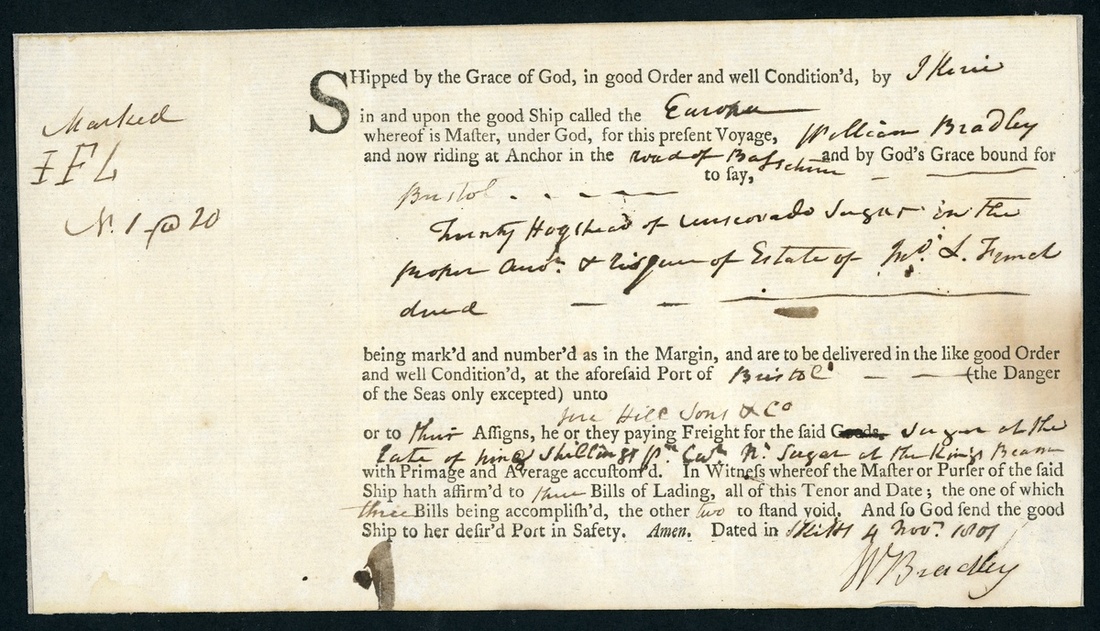 Marked
IFL
N. 1 @ 20
SHipped by the Grace of God, in good Order and well Condition'd, by
in and upon the good Ship called the Europa
whereof is Maſter, under God, for this preſent Voyage, William Bradley
and now riding at Anchor in the road of and by God's Grace bound for
Bristol to ſay,
Twenty Hogshead of Muscovado Sugar in the
proper & risque of Estate of L.
being mark'd and number'd as in the Margin, and are to be delivered in the like good Order
and well Condition'd, at the aforeſaid Port of Bristol (the Danger
of the Seas only excepted) unto
Jere Hill Sons & Co
or to their Aſſigns, he or they paying Freight for the ſaid Goods. Sugar at the
rate of Shillings pr. Cwt. Sugar at the Kings Beam
with Primage and Average accuſtom'd. In Witneſs whereof the Maſter or Purſer of the ſaid
Ship hath affirm'd to three Bills of Lading, all of this Tenor and Date; the one of which
three Bills being accompliſh'd, the other two to ſtand void. And ſo God ſend the good
Ship to her deſir'd Port in Safety. Amen. Dated in St Kitts 4 Novr. 1801
Wm Bradley